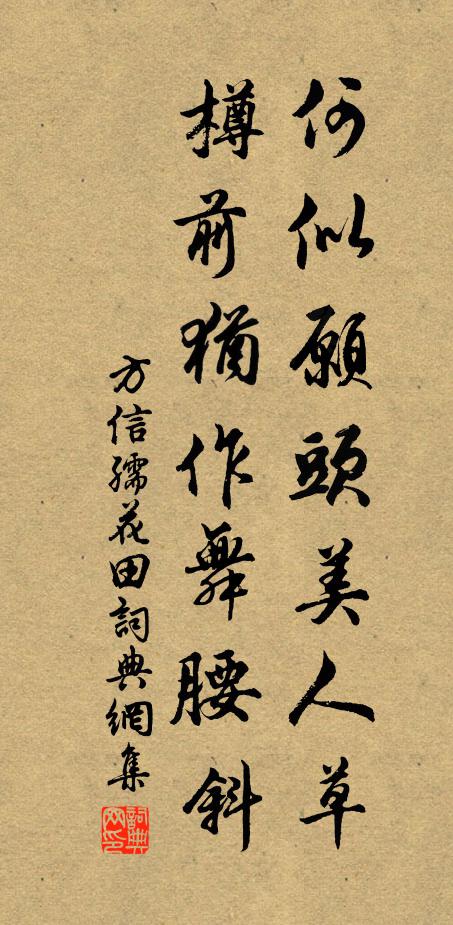 何似願頭美人草
樽前猶作舞腰斜
方信孺花田詞典網集
詞典網印